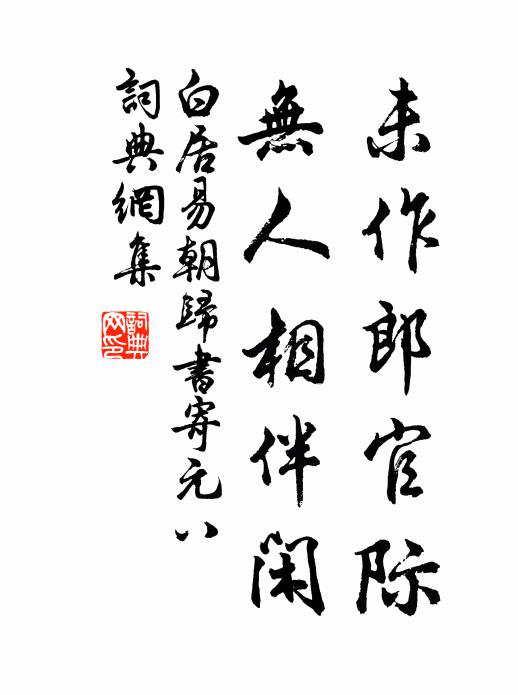 未作郎官际
無人相伴閑
白居易朝歸書寄元八
詞典網集
詞典网印